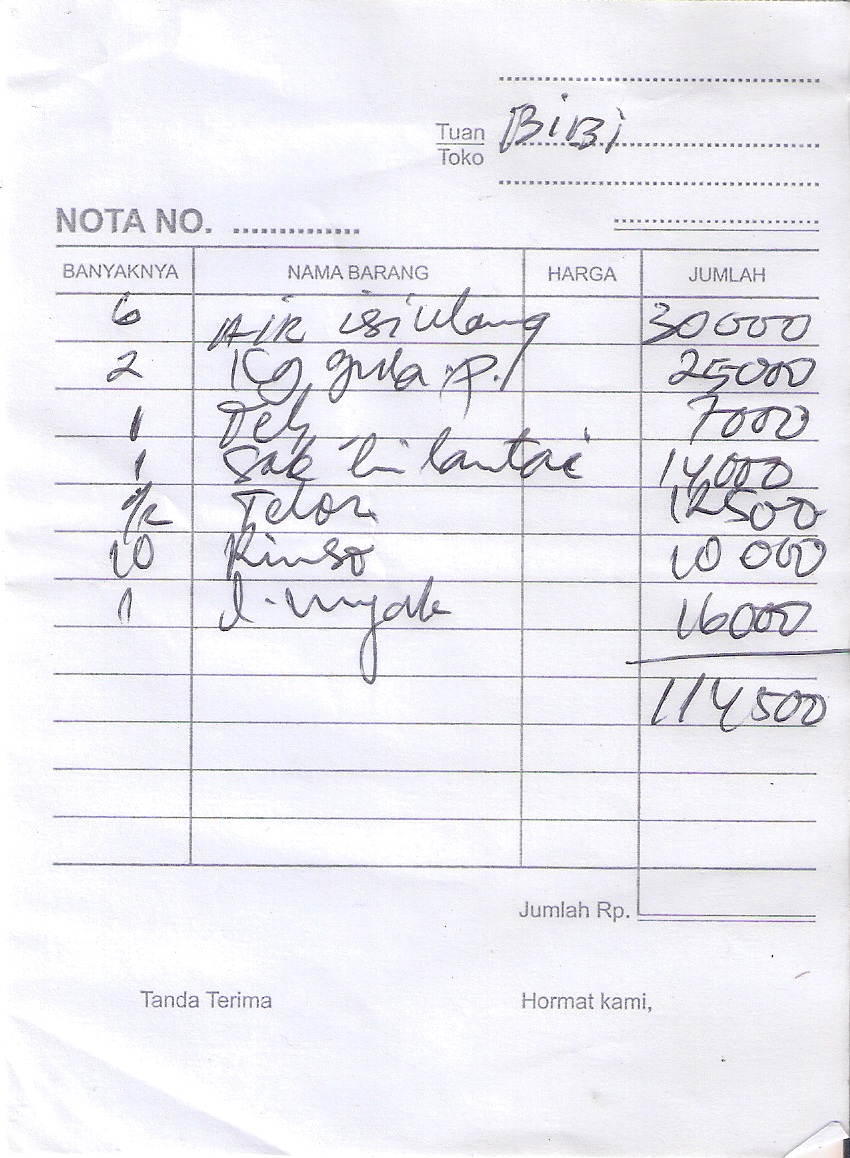 Tuan
Toko BiBi
NOTA NO. ................
BANYAKNYA NAMA BARANG HARGA JUMLAH
6 Air isi ulang 30000
2 Kg gula .p. 25000
1 Teh 7000
1 lantai 14000
1/2 Telor 12500
10 Rinso 10 000
1 16000
114500
Jumlah Rp.
Tanda Terima Hormat kami,